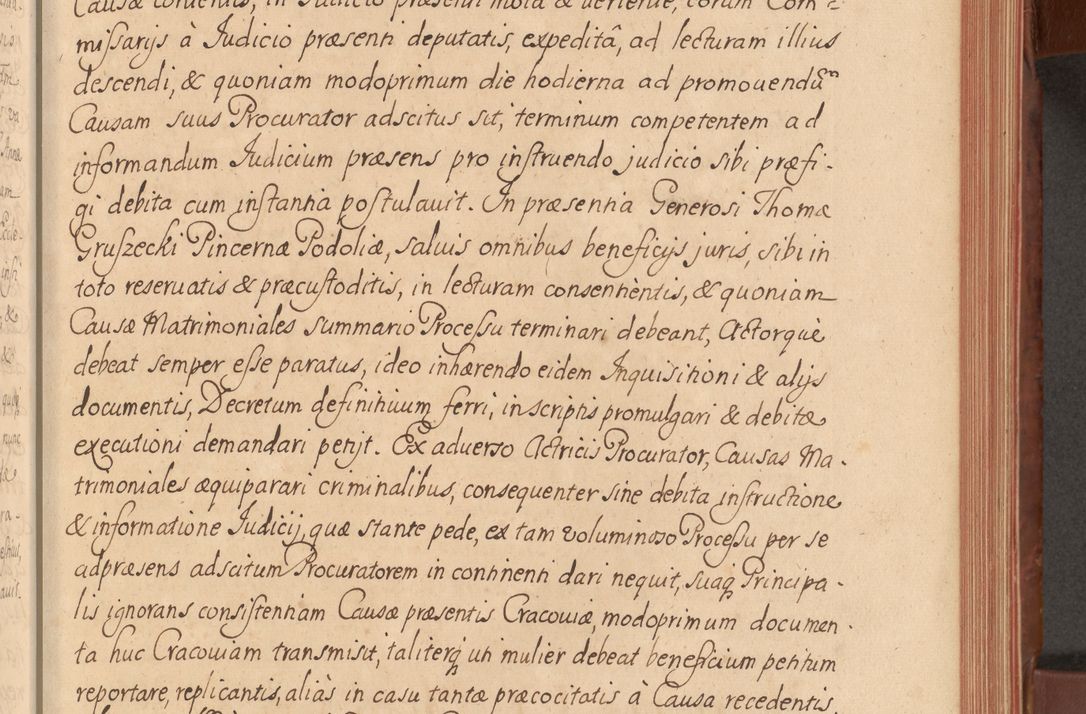 Causæ conventus, in Judicio præsenti mota & vertente, coram Com=
missarijs à Judicio præsenti deputatis, expeditâ, ad lecturam illius
descendi, & quoniam modoprimum die hodierna ad promouendũm
Causam suus Procurator adscitus sit, terminum competentem ad
informandum Judicium præsens pro instruendo judicio sibi præfi-
gi debita cum instantia postulauit. In præsentia Generosi Thomæ
Gruszecki Pincernæ Podoliæ, saluis omnibus beneficijs juris, sibi in
toto reseruatis & præcustoditis, in lecturam consentientis, & quoniam
Causæ Matrimoniales summario Processu terminari debeant, Actorquè
debeat semper esse paratus, ideo inhærendo eidem Inquisitioni & alijs
documentis, Decretum definitiuum ferri, in scriptis promulgari & debitæ
executioni demandari petijt. Ex aduerso Actricis Procurator, Causas Ma-
trimoniales æquiparari criminalibus, consequenter sine debita instructione
& informatione Judicij, quæ stante pede, ex tam voluminoso Processu per se
adpræsens adscitum Procuratorem in continenti dari nequit, suaq Principa-
lis ignorans consistentiam Causæ præsentis Cracouiæ, modoprimum documen-
ta huc Cracouiam transmisit, taliterq uti mulier debeat beneficium petitum
reportare, replicantis, aliàs in casu tantæ præcocitatis à Causa recedentis,